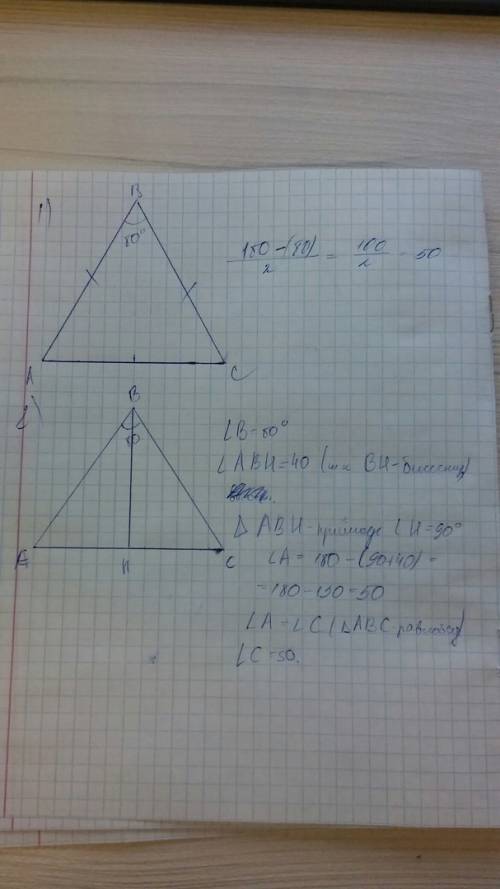 1)
B
80°
A
C
180-(80)
2
=
100
2
- 50
2)
B
80
C
H
∠B-80°
∠ABH=40 (тк BH-биссектр)
Δ ABH-прямоуг ∠H=90°
∠A = 180 - (90+40) =
=180-130=50
∠A-∠C (ΔABC-равнобед)
∠C=50.